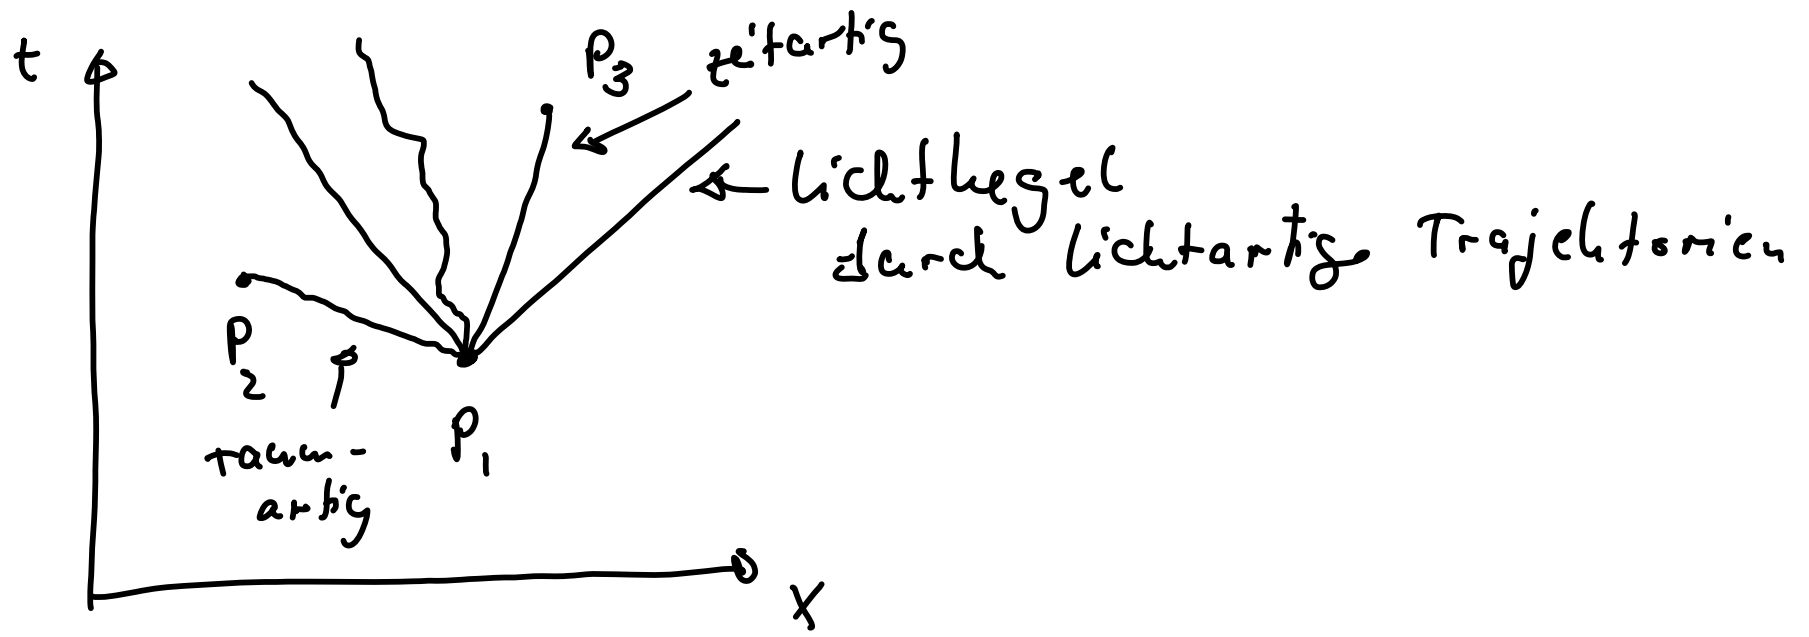 t
P3
zeitartig
Lichtkegel
durch lichtartige Trajektorien
P2
P1
raum-
artig
x